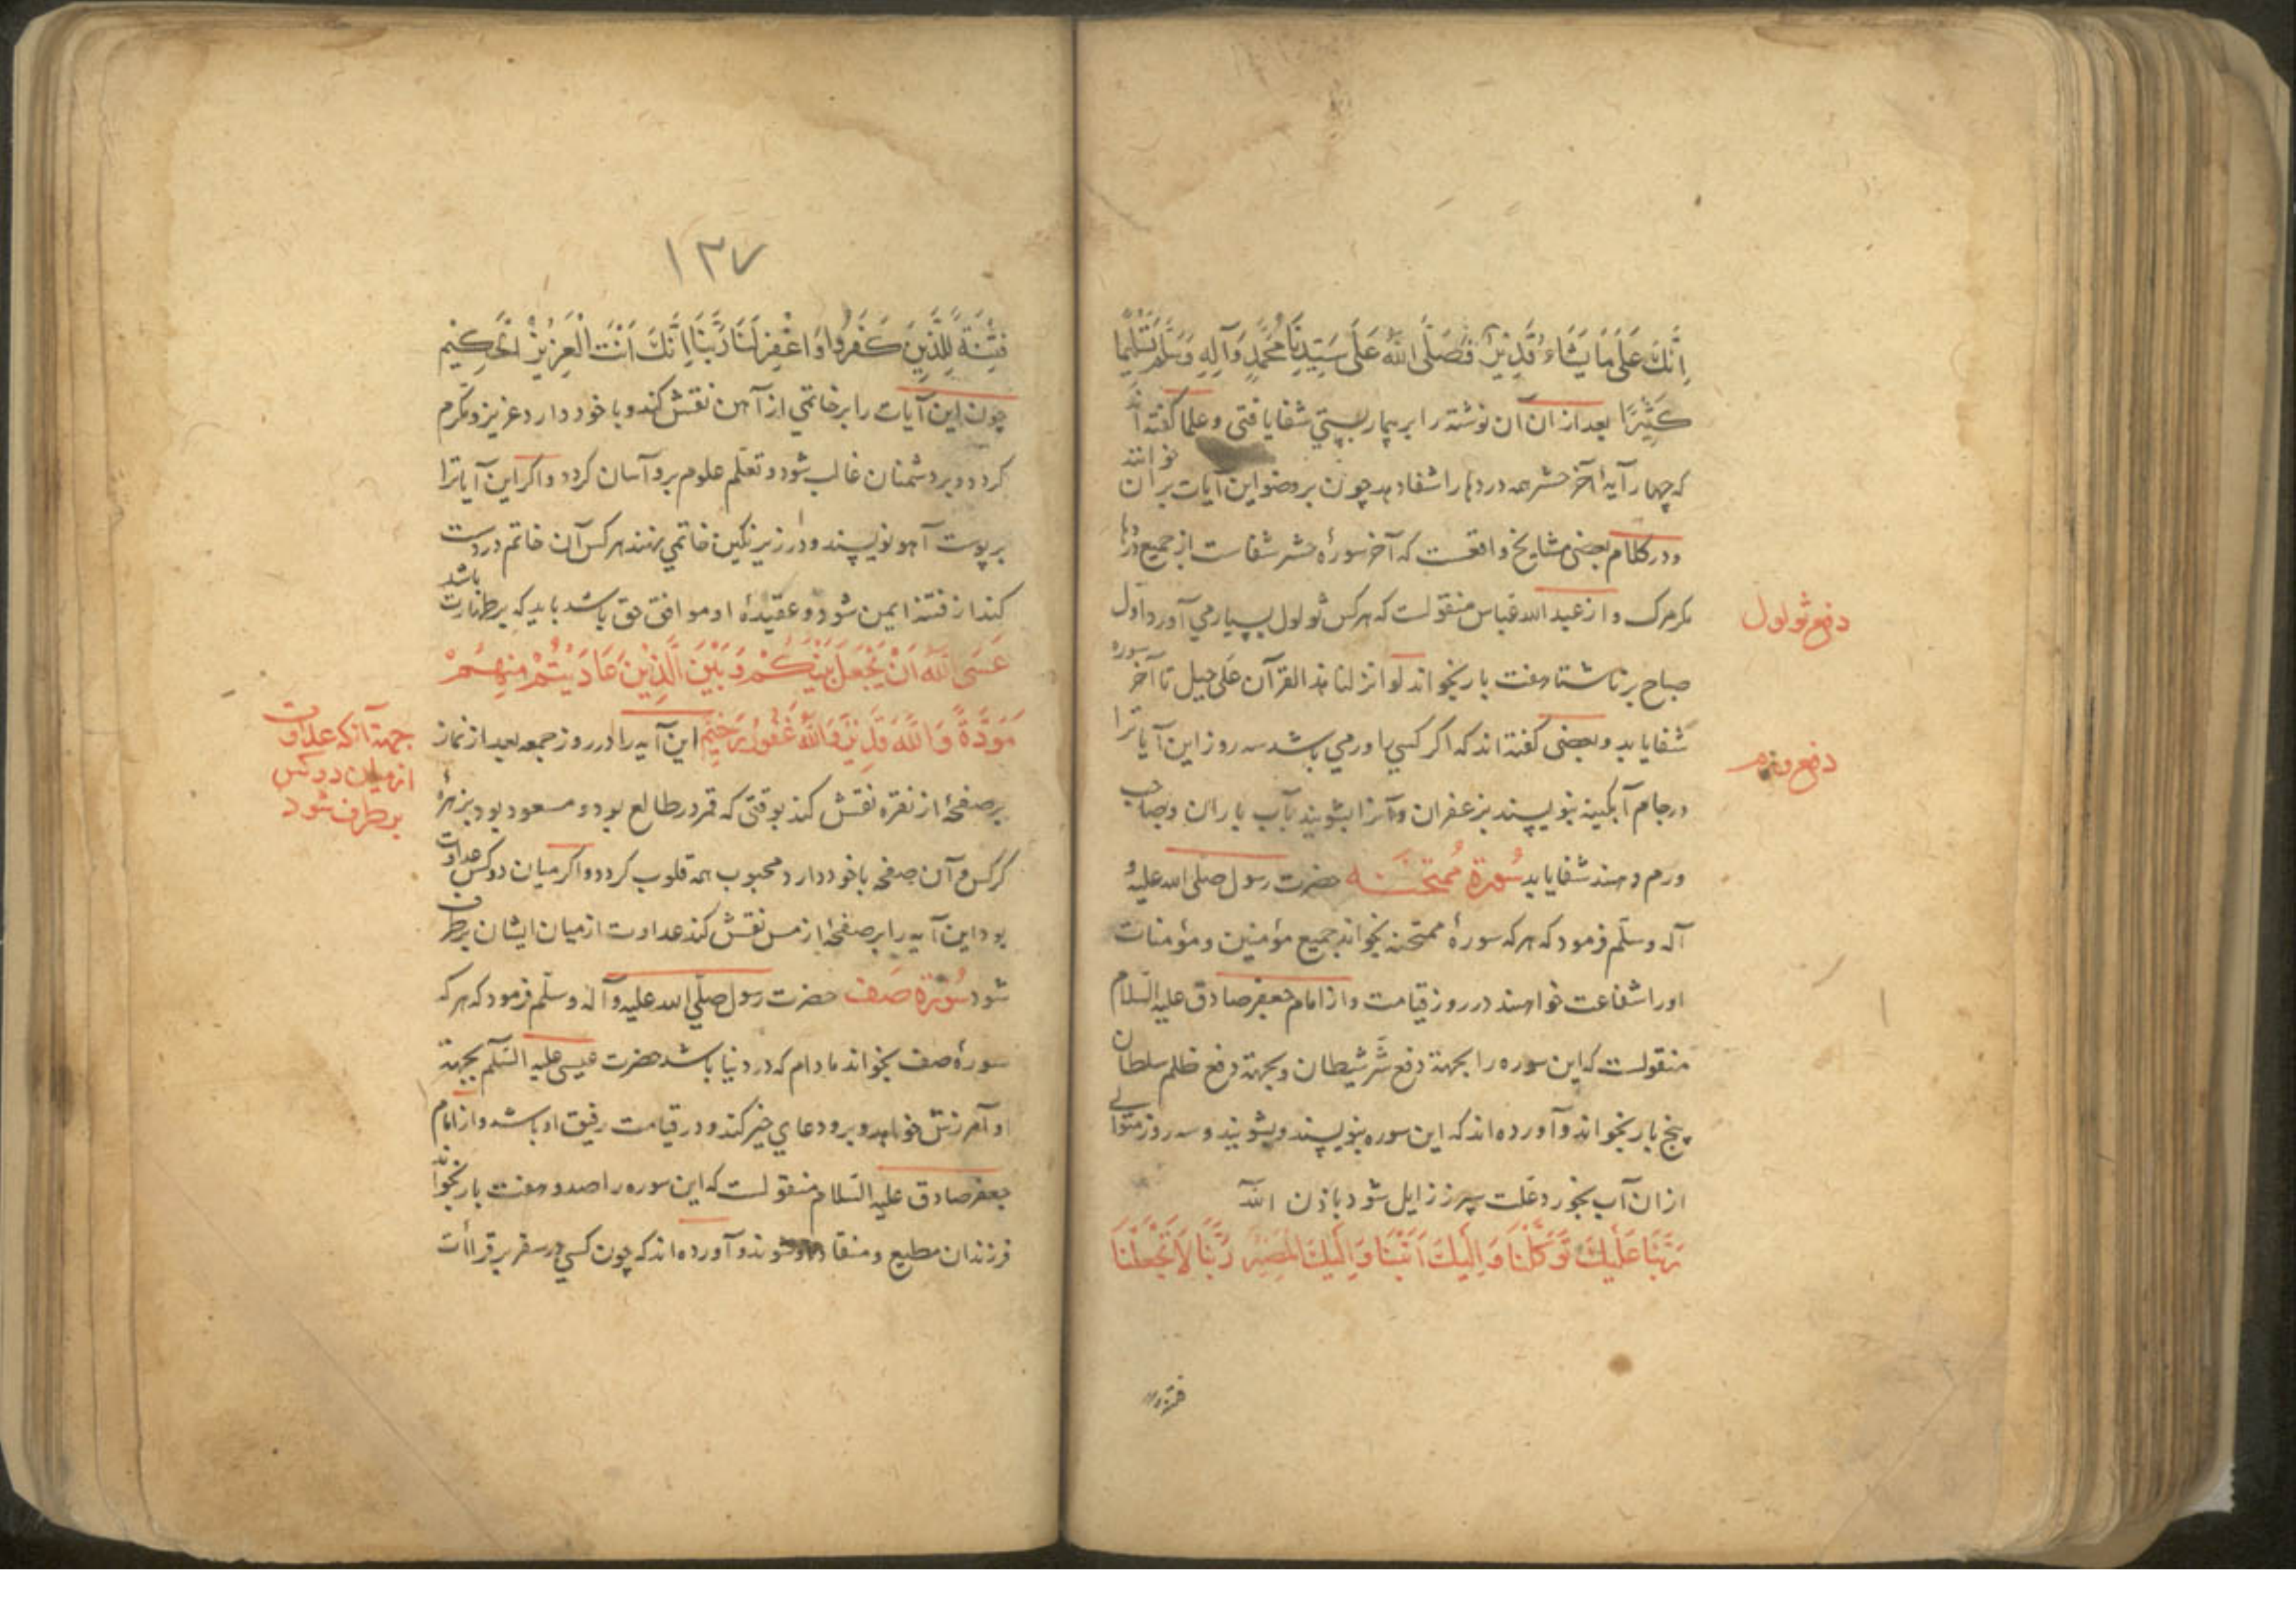 اِنَّكَ عَلَى مَا يَشَاءُ قَدِيرٌ فَصَلَّى اللهُ عَلَى سَيِّدِنَا مُحَمَّدٍ وَآلِهِ وَسَلَّمَ تَسْلِيمًا
كَثِيرًا بعد از ان آن نوشته را بر بیمار بستی شفا یافتی و علما گفته اند
که چهار آیهٔ آخر حشر همه دردها را شفا دهد چون بر وضو این آیات بر آن خوانند
و در کلام بعضی مشایخ واقعست که آخر سورهٔ حشر شفاست از جمیع دردها
مکر مرک و از عبد الله عباس منقولست که هر کس ثولول بسیار می آورد اول
صباح بر ناشتا هفت بار بخواند لو انزلنا هذا القرآن علی جبل تا آخر سوره
شفا یابد و بعضی گفته اند که اگر کسی را ورمی باشد سه روز این آیاترا
در جام آبکینه بنویسند بزعفران و آنرا بشویند بآب باران و بصاحب
ورم دهند شفا یابد سُورَة مُمتَحَنَه حضرت رسول صلی الله علیه و
آله وسلّم فرمود که هر که سورهٔ ممتحنه بخواند جمیع مؤمنین و مؤمنات
او را شفاعت خواهند در روز قیامت و از امام جعفر صادق علیه السّلام
منقولست که این سوره را بجهة دفع شَرّ شیطان و بجهة دفع ظلم سلطان
پنج بار بخواند و آورده اند که این سوره بنویسند و بشویند و سه روز متوالی
از ان آب بخورد علت سپرز زایل شود باذن الله
رَبَّنَا عَلَيْكَ تَوَكَّلْنَا وَاِلَيْكَ اَنَبْنَا وَاِلَيْكَ الْمَصِيْرُ رَبَّنَا لَا تَجْعَلْنَا
دفع ثولول
دفع ورم
فتنة
١٣٧
فِتْنَةً لِلَّذِينَ كَفَرُوا وَاغْفِرْ لَنَا رَبَّنَا اِنَّكَ اَنْتَ الْعَزِيْزُ الْحَكِيْمُ
چون این آیات را بر خاتمی از آهن نقش کند و با خود دارد عزیز و مکرم
کردد و بر دشمنان غالب شود و تعلّم علوم برو آسان کردد و اکر این آیاترا
بر پوست آهو نویسند و در زیر نکین خاتمی نهند هر کس آن خاتم در دست
کند از فتنه ایمن شود و عقیدهٔ او موافق حق باشد باید که بر طهارت باشد
عَسَى اللّٰهُ اَنْ يَجْعَلَ بَيْنَكُمْ وَبَيْنَ الَّذِيْنَ عَادَيْتُمْ مِنْهُمْ
مَوَدَّةً وَاللّٰهُ قَدِيْرٌ وَاللّٰهُ غَفُوْرٌ رَحِيْمٌ این آیه را در روز جمعه بعد از نماز
بر صفحهٔ از نقره نقش کند بوقتی که قمر در طالع بود و مسعود بود بزهرهٔ
هر کس آن صفحه با خود دارد محبوب همه قلوب کردد و اکر میان دو کس عداوت
بود این آیه را بر صفحهٔ از مس نقش کند عداوت از میان ایشان بر طرف
شود سُورَة صَف حضرت رسول صلّی الله علیه و آله وسلّم فرمود که هر که
سورهٔ صف بخواند مادام که در دنیا باشد حضرت عیسی علیه السّلام بجهة
او آمرزش خواهد و برو دعای خیر کند و در قیامت رفیق او باشد و از امام
جعفر صادق علیه السّلام منقولست که این سوره را صد و هفت بار بخواند
فرزندان مطیع و منقاد شوند و آورده اند که چون کسی در سفر بر قرأت
جهة آنکه عداوت
از میان دو کس
بر طرف شود